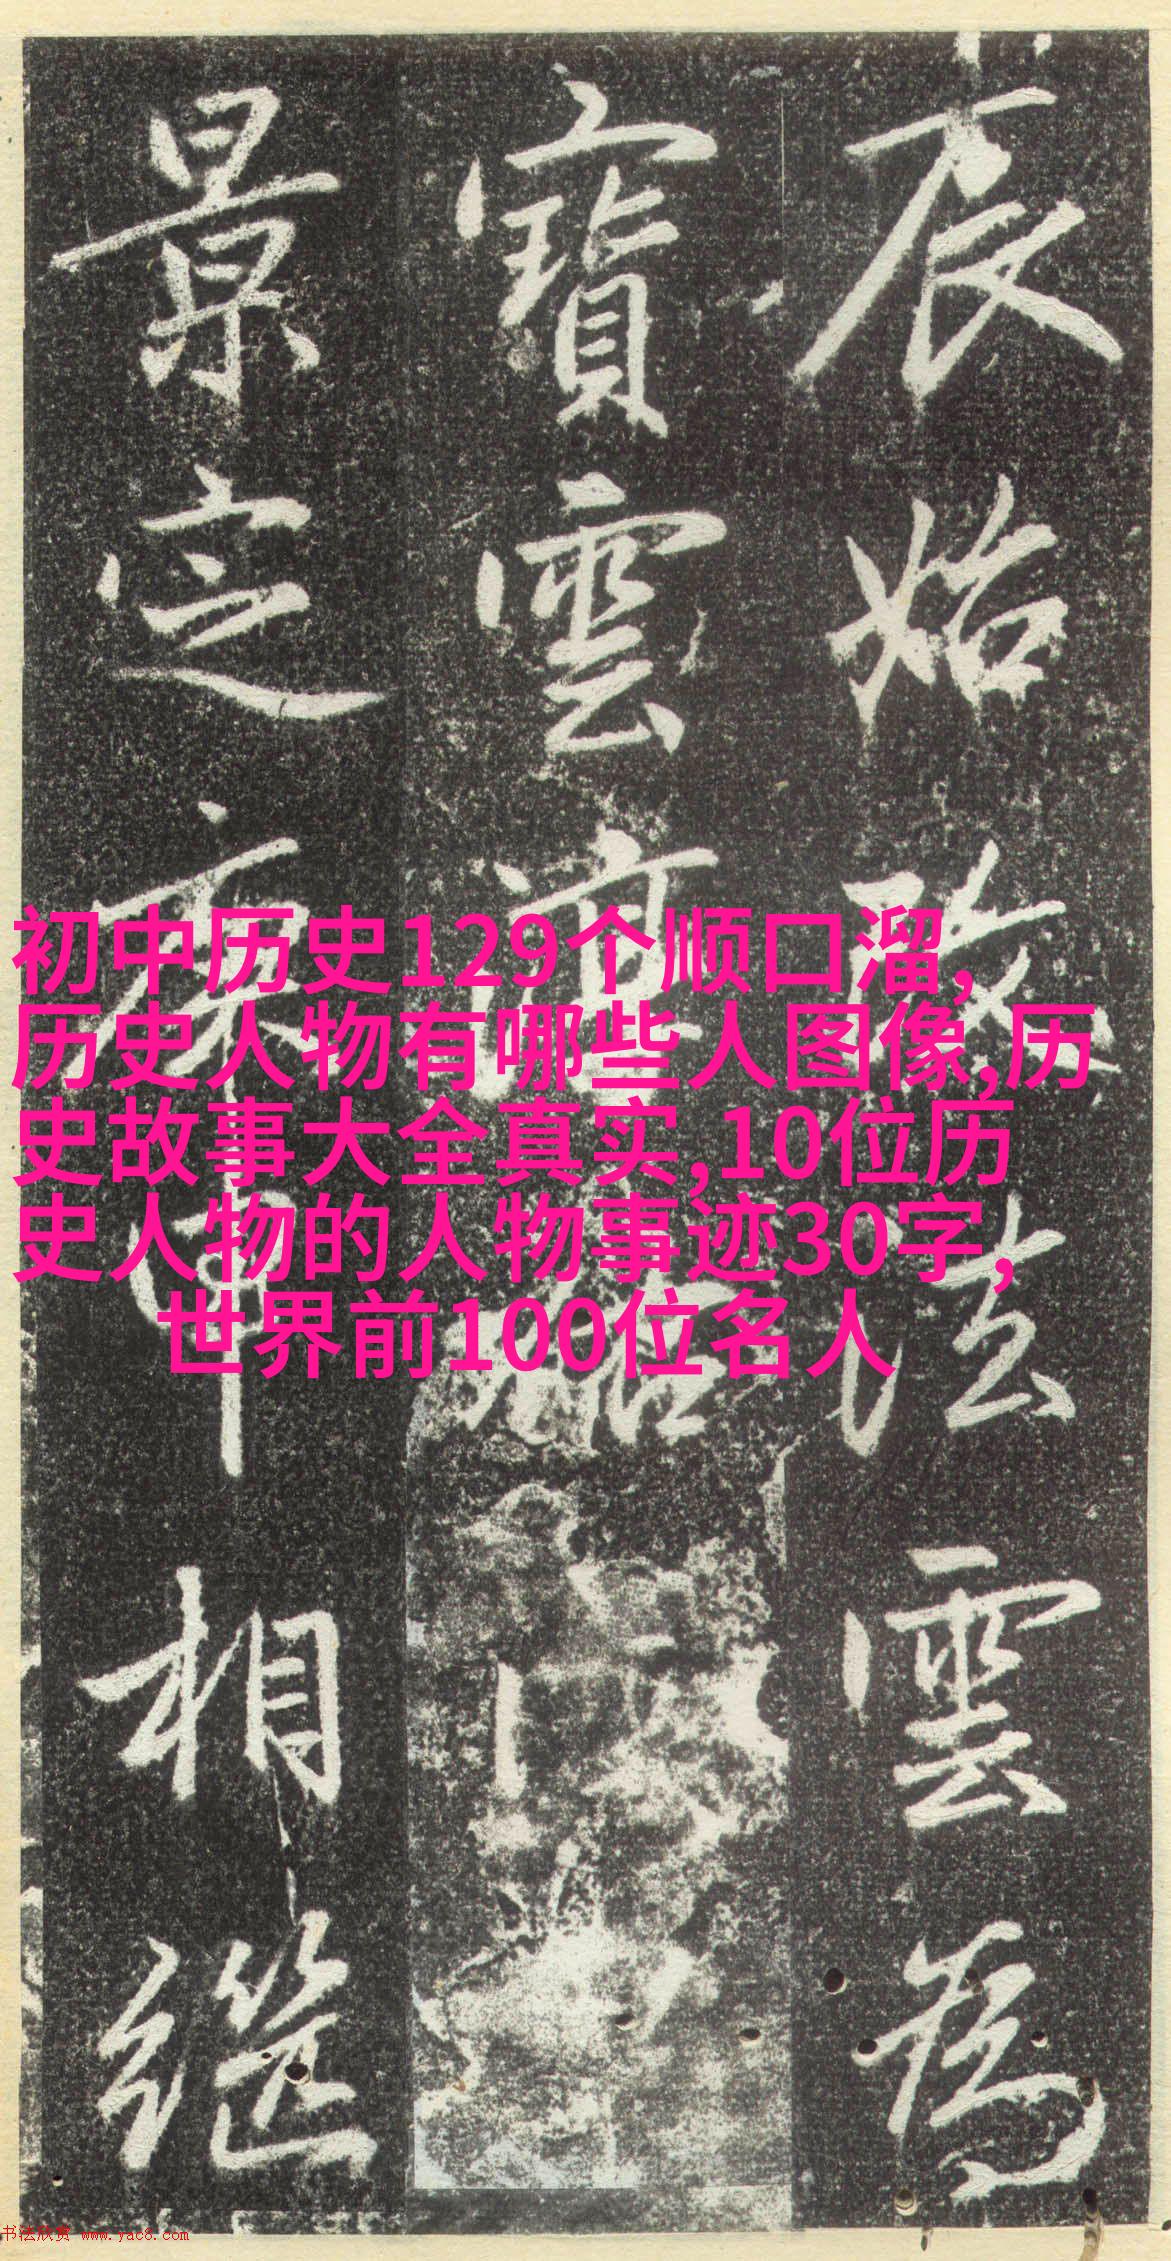 辰始改法雲為
寶雲寺
景定庚申相繼
初中历史129个顺口溜,
历史人物有哪些人图像,历
史故事大全真实,10位历
史人物的人物事迹30字,
世界前100位名人
书法欣赏 www.yac8.com